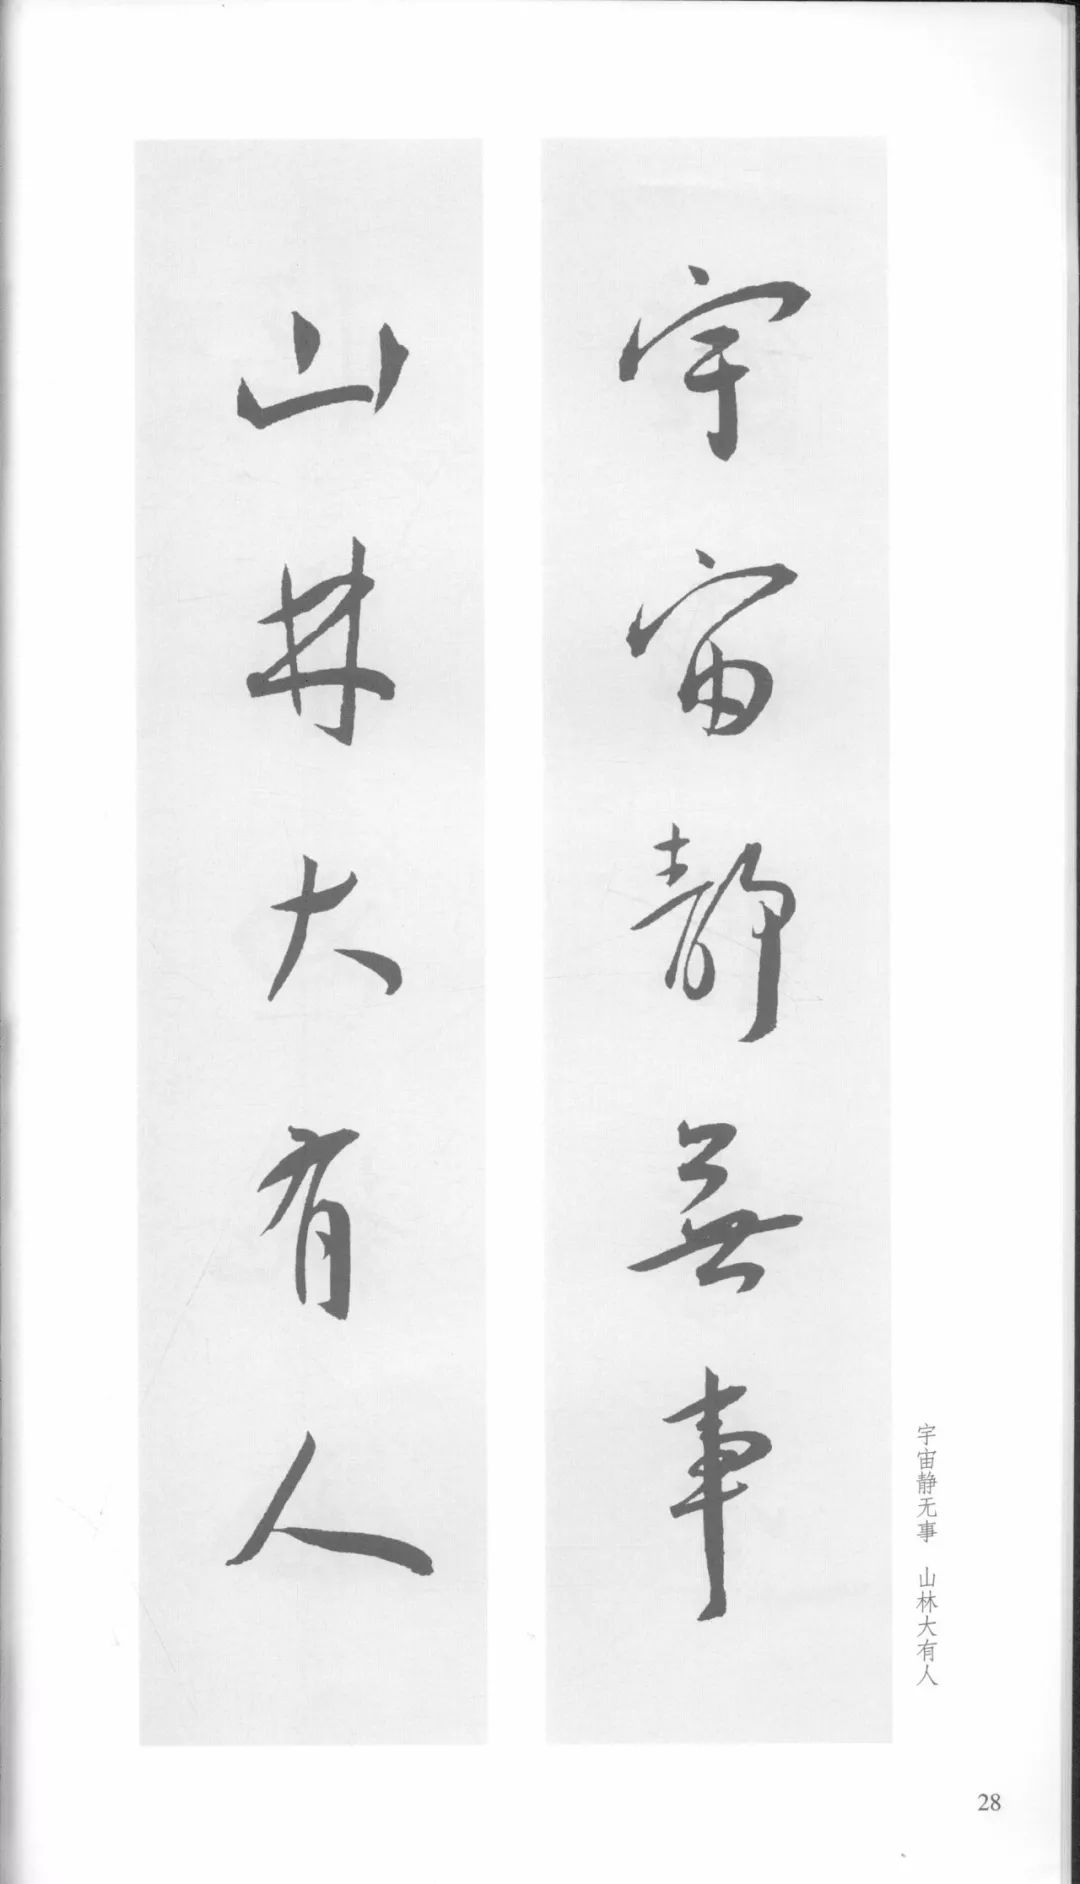 宇宙静無事
山林大有人
宇宙静无事　山林大有人
28